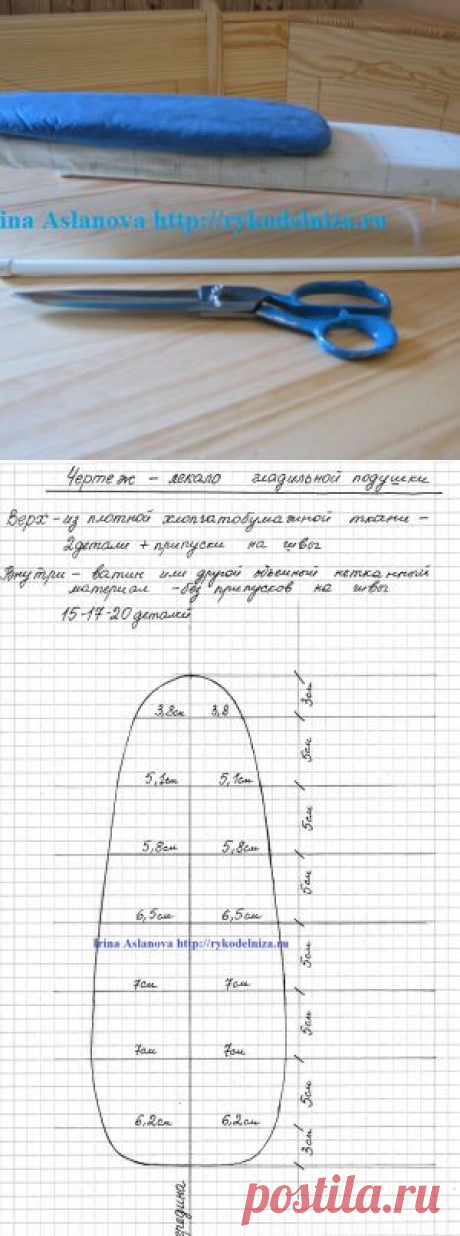 ina Aslanova http://rykodelniza.ru
Чертеж - лекало гладильной подушки
Верх - из плотной хлопчатобумажной ткани -
2 детали + припуски на швы
Внутри - ватин или другой объемный нетканный
материал - без припусков на швы
15-17-20 деталей
3см
3,8см 3,8
5см
5,1см 5,1см
5см
5,8см 5,8см
5см
6,5см 6,5см
Irina Aslanova http://rykodelniza.ru
5см
7см 7см
5см
7см 7см
5см
6,2см 6,2см
3см
середина
postila.ru